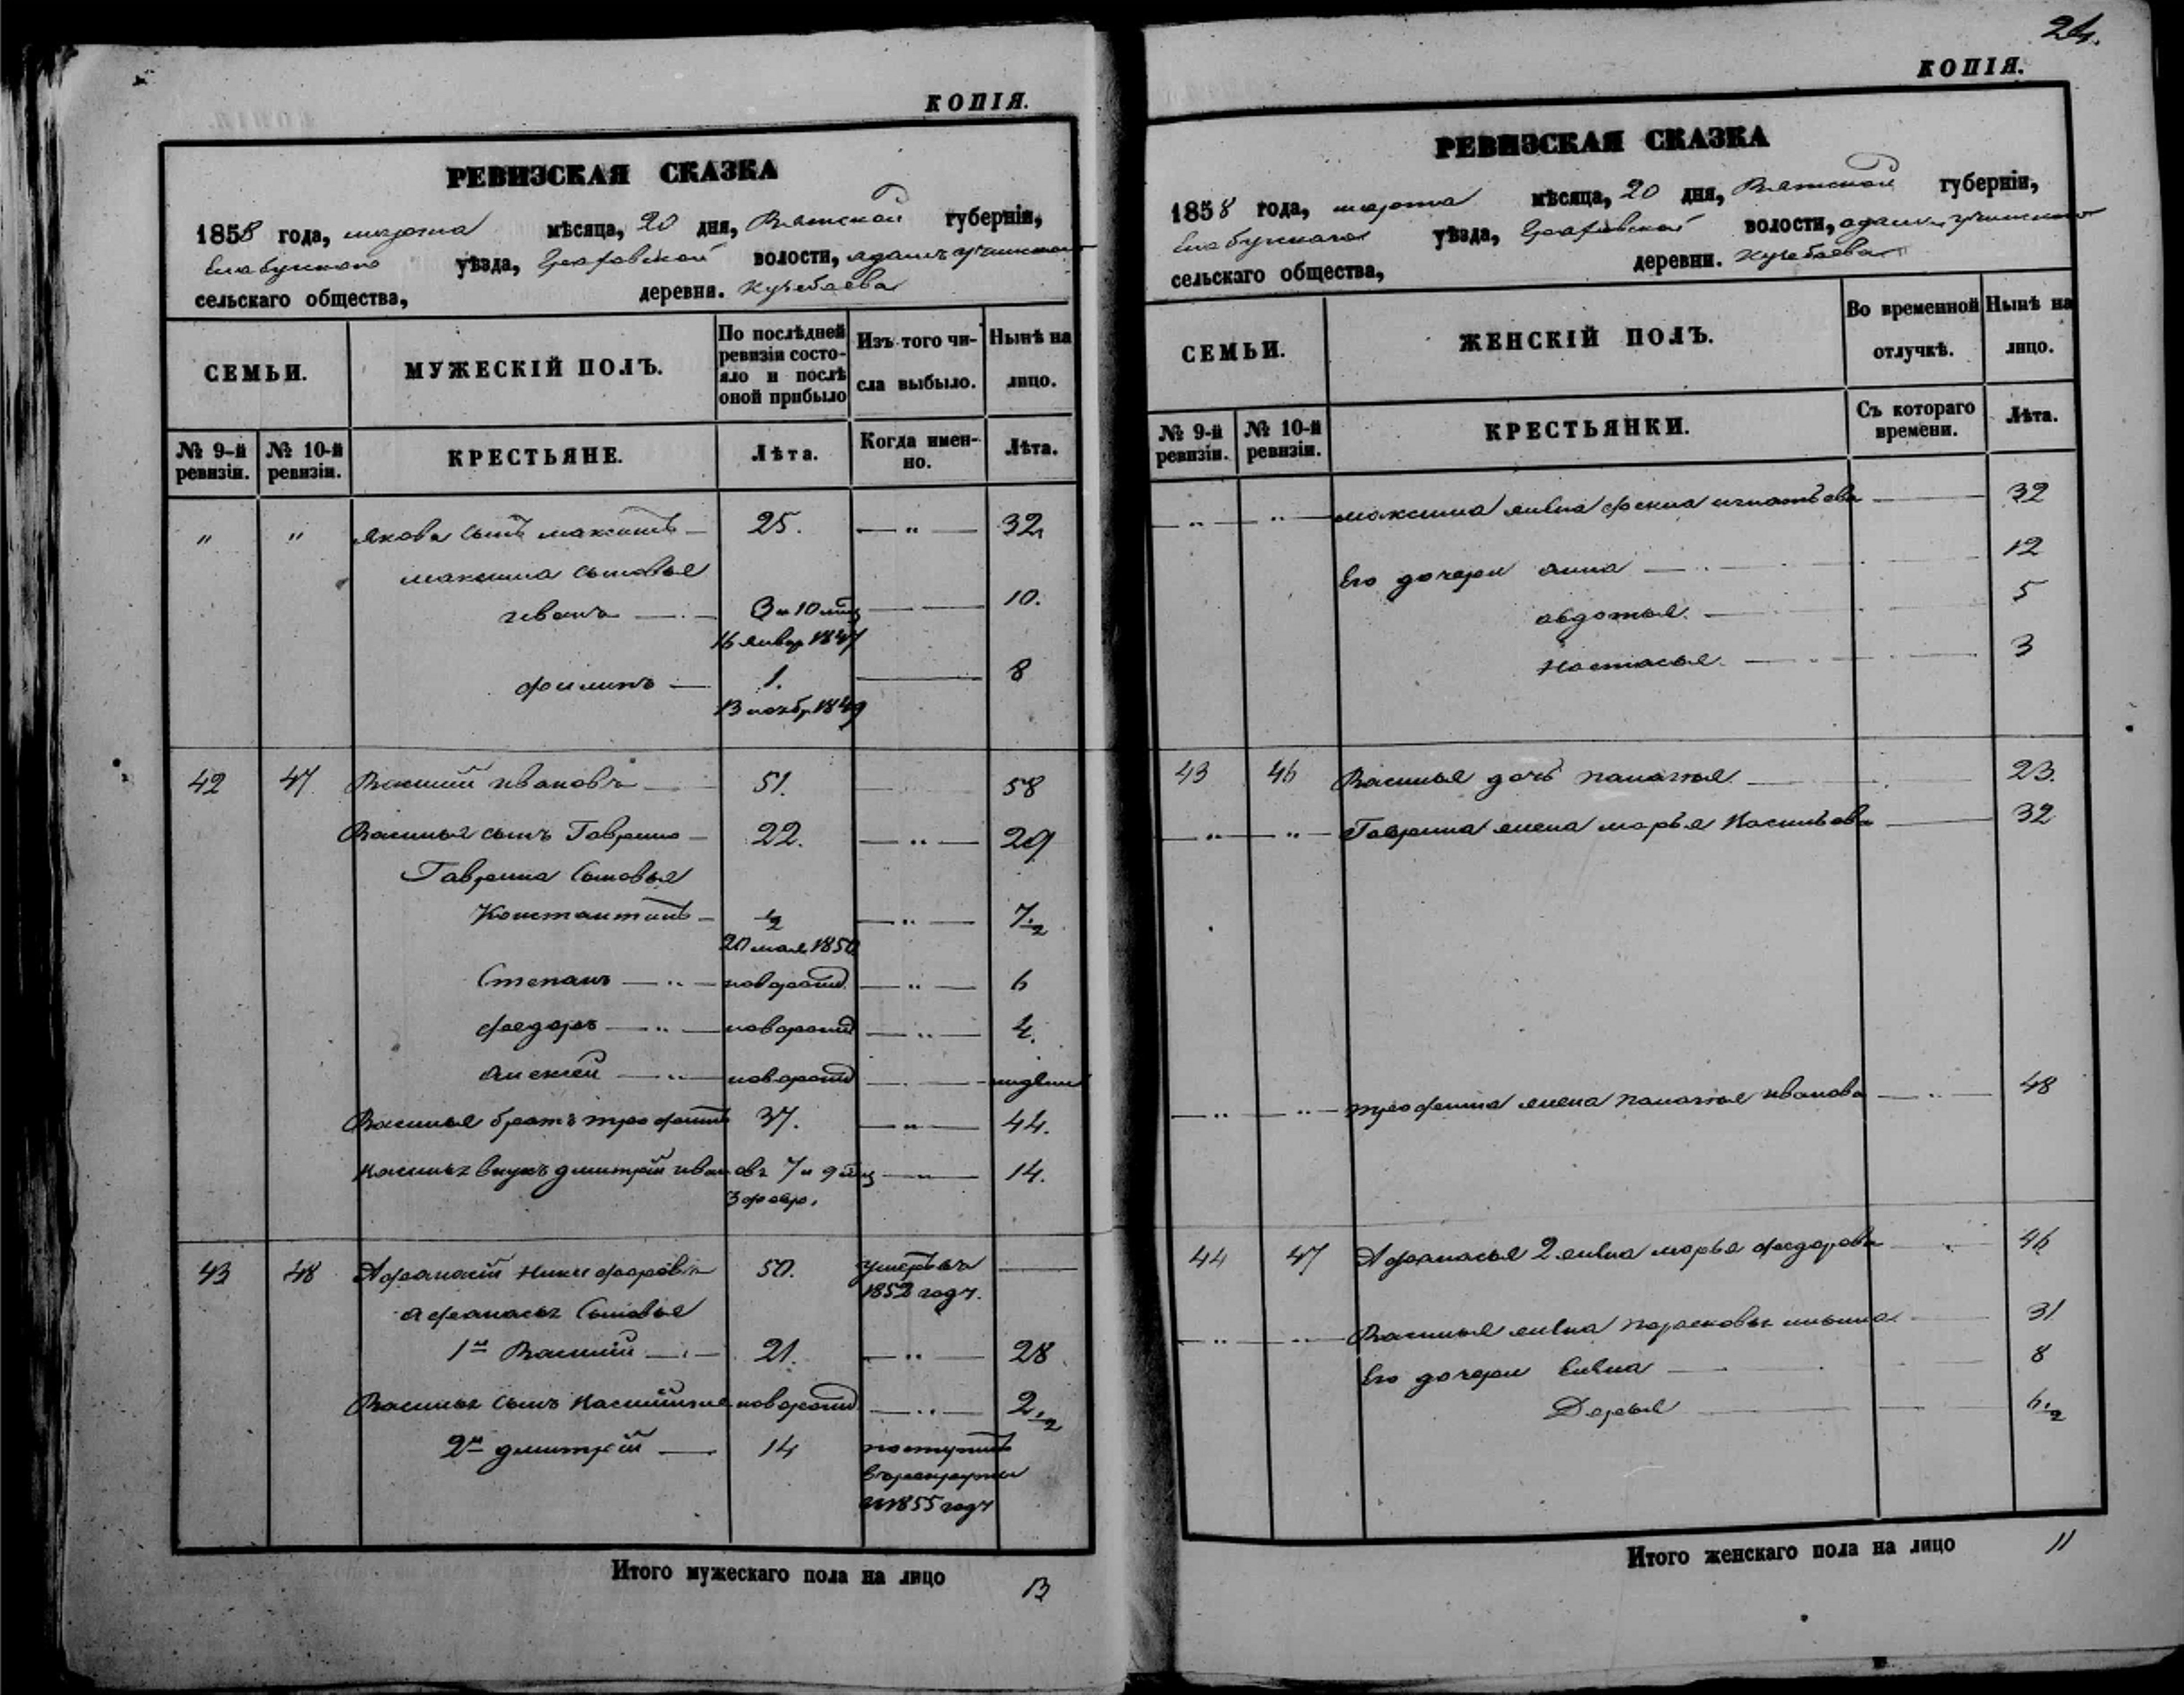 КОПІЯ.
РЕВИЗСКАЯ СКАЗКА
1858 года, марта мѣсяца, 20 дня, Вятской губерніи,
Елабужского уѣзда, Граховской волости,
сельскаго общества, деревни. Кучебаева
СЕМЬИ.
МУЖЕСКІЙ ПОЛЪ.
По послѣдней
ревизіи состо-
яло и послѣ
оной прибыло
Изъ того чи-
сла выбыло.
Нынѣ на
лицо.
№ 9-й
ревизіи.
№ 10-й
ревизіи.
КРЕСТЬЯНЕ.
Лѣта.
Когда имен-
но.
Лѣта.
" " Якова сынъ Максимъ 25. " 32
Максима сыновья
Иванъ 3 и 10 мѣс 10.
16 январ 1847
Филипъ 1. 8
13 ноябр 1849
42 47 Василий Ивановъ 51. 58
Василья сынъ Гаврило 22. " 29
Гаврила сыновья
Константинъ 1/2 " 7 1/2
20 мая 1850
Степанъ новорожд " 6
Федоръ новорожд " 4.
Алексей новорожд
Василья братъ Трофимъ 37. " 44.
внукъ Дмитрій Ивановъ 7 и 9 мѣс 14.
3 февр.
43 48 Афанасій Никифоровъ 50. умеръ въ
1852 году.
Афанасья сыновья
1й Василий 21. " 28
Василья сынъ новорожд " 2 1/2
2й Дмитрій 14 поступилъ
в рекруты
в 1855 году
Итого мужескаго пола на лицо 13
24.
КОПІЯ.
РЕВИЗСКАЯ СКАЗКА
1858 года, марта мѣсяца, 20 дня, Вятской губерніи,
Елабужского уѣзда, Граховской волости,
сельскаго общества, деревни. Кучебаева
СЕМЬИ.
ЖЕНСКІЙ ПОЛЪ.
Во временной
отлучкѣ.
Нынѣ на
лицо.
№ 9-й
ревизіи.
№ 10-й
ревизіи.
КРЕСТЬЯНКИ.
Съ котораго
времени.
Лѣта.
" " Максима жена Фекла Игнатьева 32
Его дочери Анна 12
Авдотья. 5
Настасья. 3
43 46 Василья дочь Палагея 23.
" " Гаврила жена Марья Васильева 32
" " Трофима жена Палагея Иванова 48
44 47 Афанасья 2 жена Марья Федорова 46
" " Василья жена Парасковья 31
Его дочери Елена 8
Дарья 6 1/2
Итого женскаго пола на лицо 11